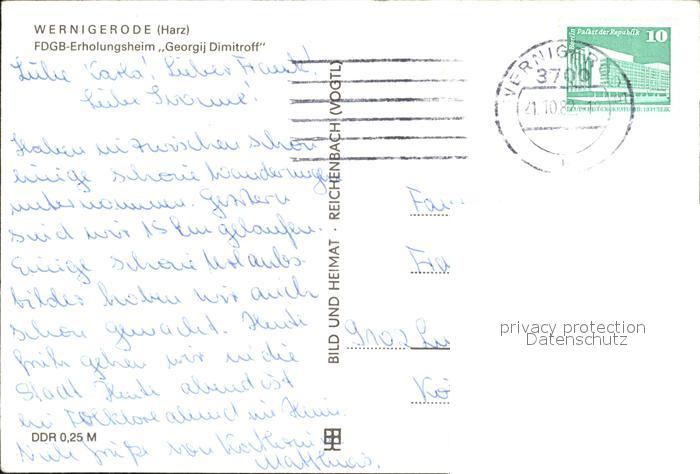 WERNIGERODE (Harz)
FDGB-Erholungsheim „Georgij Dimitroff"
Liebe Karla! Lieber Frank!
Liebe Yvonne!
Haben inzwischen schon
einige schöne Wanderungen
unternommen. Gestern
sind wir 15 km gelaufen.
Einige schöne Urlaubs-
bilder haben wir auch
schon gemacht. Heute
früh gehen wir in die
Stadt. Heute abend ist
ein Folkloreabend im Heim.
Viele Grüße von Kathrin
Matthias.
DDR 0,25 M
BILD UND HEIMAT · REICHENBACH (VOGTL)
Berlin Palast der Republik
10
DEUTSCHE DEMOKRATISCHE REPUBLIK
WERNIGERODE
3700
21.10.8
Fam
Fra
9102
privacy protection
Datenschutz